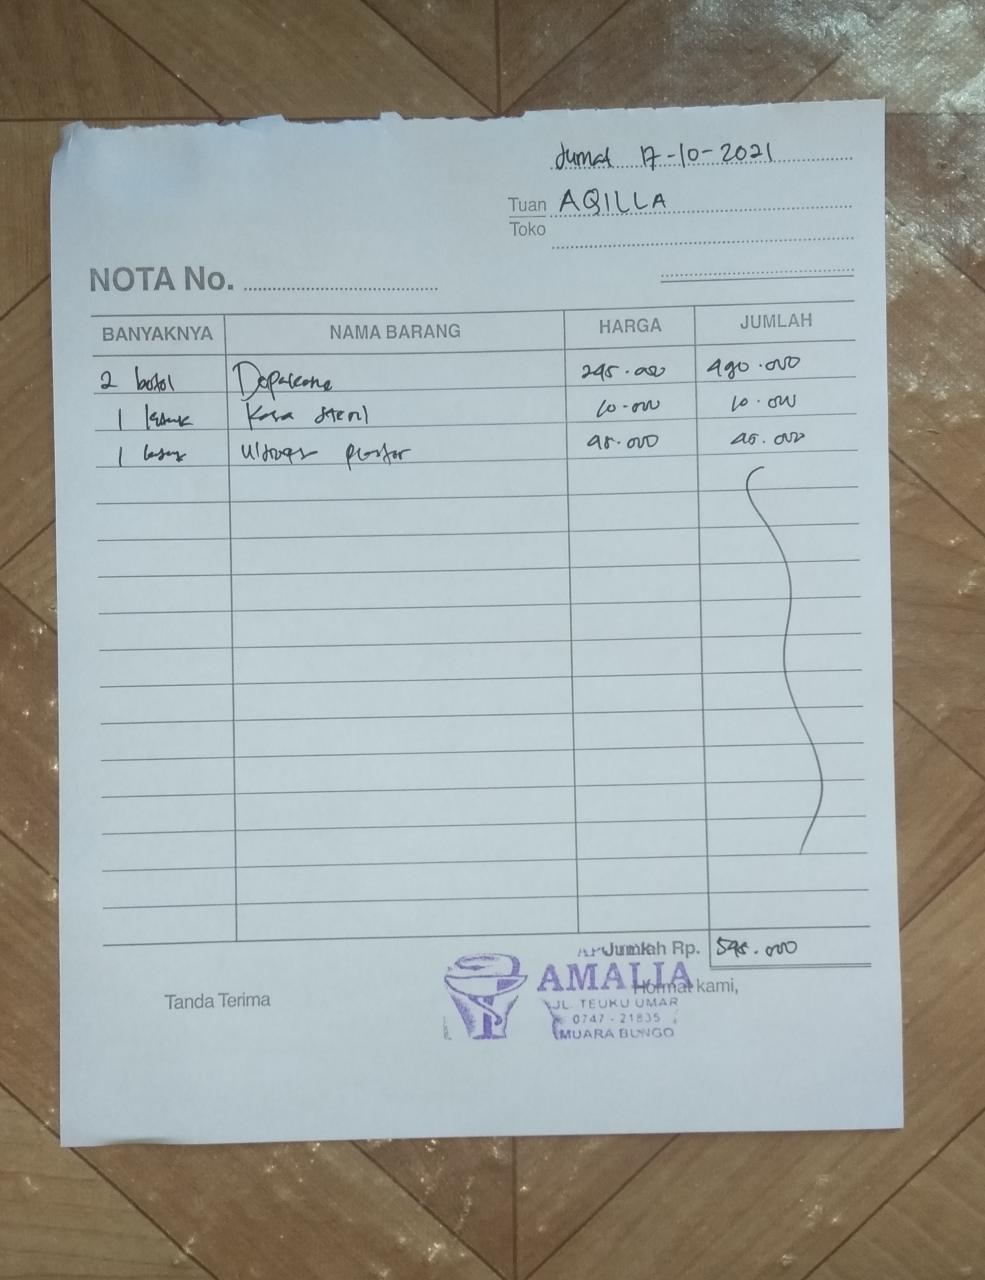 Jumat 17-10-2021
Tuan AQILLA
Toko
NOTA No.
BANYAKNYA NAMA BARANG HARGA JUMLAH
2 botol Depakene 245.000 490.000
1 Kasa steril 10.000 10.000
1 Ultrafix plester 95.000 95.000
Jumlah Rp. 595.000
Tanda Terima Hormat kami,
AMALIA
JL. TEUKU UMAR
0747 - 21835
MUARA BUNGO